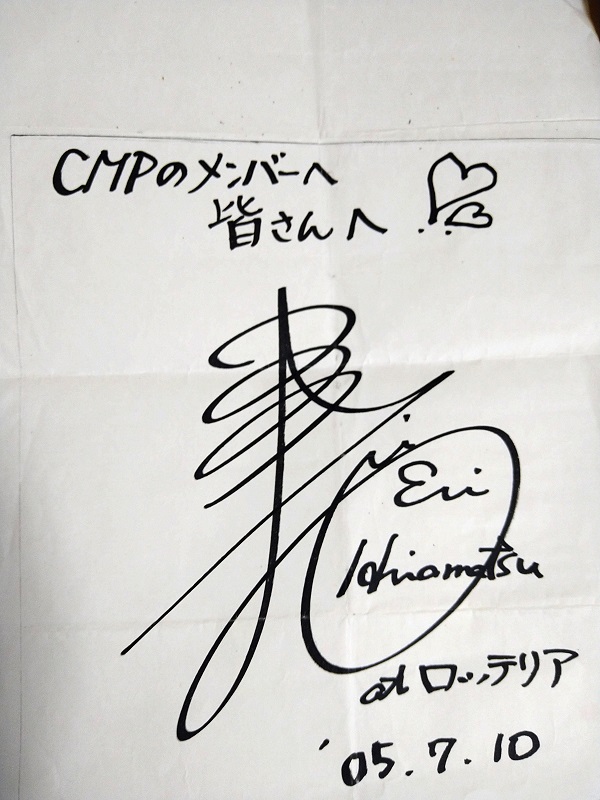 CMPのメンバーへ
皆さんへ
Eri
Hiramatsu
at ロッテリア
'05.7.10